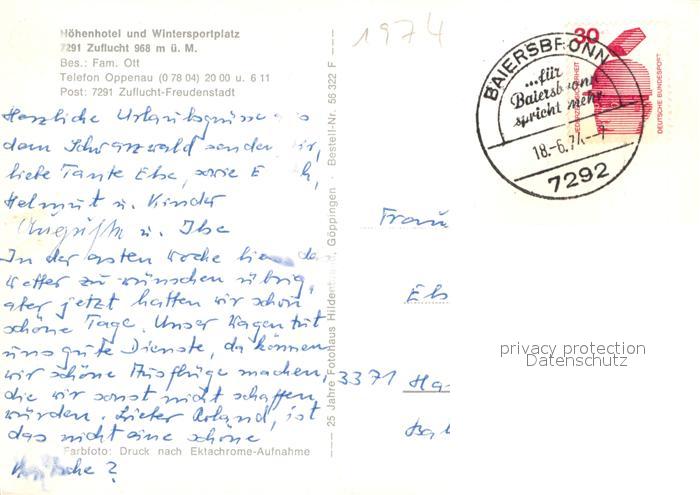 Höhenhotel und Wintersportplatz
7291 Zuflucht 968 m ü. M.
Bes.: Fam. Ott
Telefon Oppenau (0 78 04) 20 00 u. 6 11
Post: 7291 Zuflucht-Freudenstadt
1974
Herzliche Urlaubsgrüsse
dem Schwarzwald senden
liebe Tante Else, sowie E
Helmut u. Kinder
Auguste u. Ilse
In der ersten Woche liess das
Wetter zu wünschen übrig,
aber jetzt hatten wir schon
schöne Tage. Unser Wagen tut
uns gute Dienste, da können
wir schöne Ausflüge machen,
die wir sonst nicht schaffen
würden. Lieber Roland, ist
das nicht eine schöne
?
Farbfoto: Druck nach Ektachrome-Aufnahme
25 Jahre Fotohaus Göppingen · Bestell-Nr. 56 322 F
BAIERSBRONN
...für
Baiersbronn
spricht mehr
18.-6.74--7
7292
30
JEDERZEIT SICHERHEIT
DEUTSCHE BUNDESPOST
Frau
Els
3371 Ha
privacy protection
Datenschutz